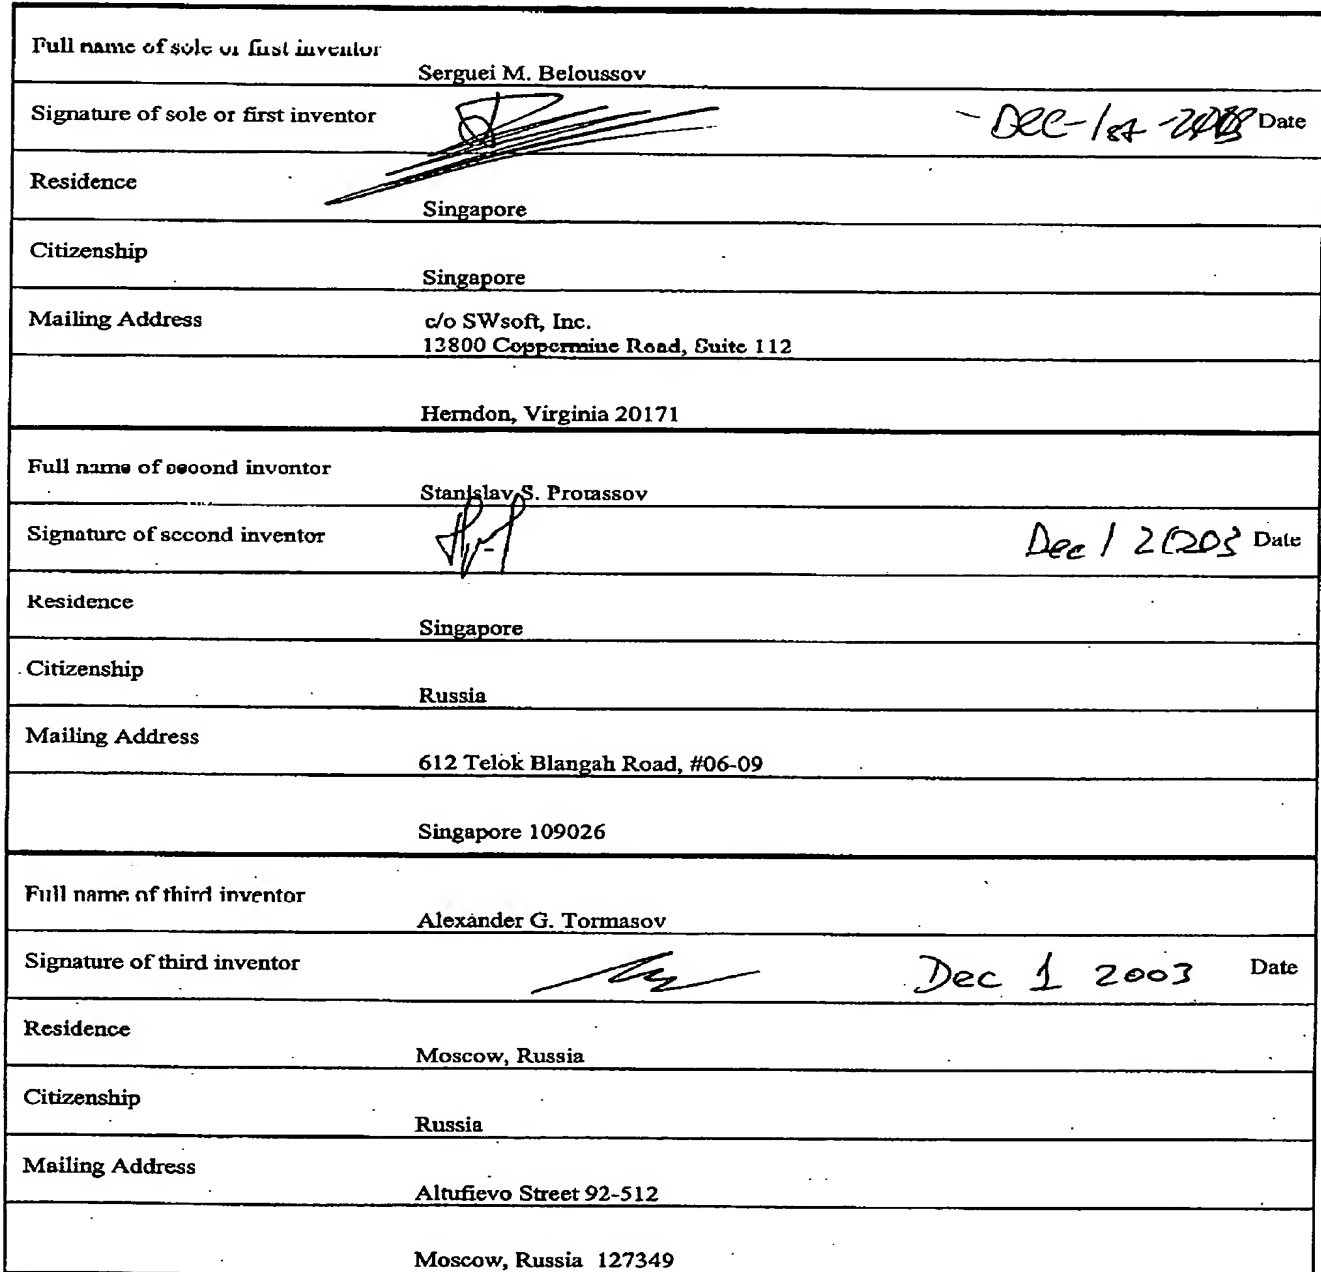 Full name of sole or first inventor
Serguei M. Beloussov
Signature of sole or first inventor
- Dec-1st-2003 Date
Residence
Singapore
Citizenship
Singapore
Mailing Address
c/o SWsoft, Inc.
13800 Coppermine Road, Suite 112
Herndon, Virginia 20171
Full name of second inventor
Stanislav S. Protassov
Signature of second inventor
Dec 1 2003 Date
Residence
Singapore
Citizenship
Russia
Mailing Address
612 Telok Blangah Road, #06-09
Singapore 109026
Full name of third inventor
Alexander G. Tormasov
Signature of third inventor
Dec 1 2003 Date
Residence
Moscow, Russia
Citizenship
Russia
Mailing Address
Altufievo Street 92-512
Moscow, Russia 127349